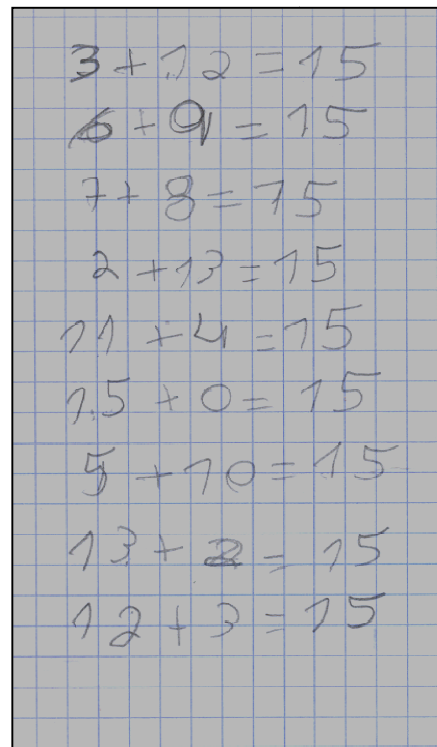 3 + 12 = 15
6 + 9 = 15
7 + 8 = 15
2 + 13 = 15
11 + 4 = 15
15 + 0 = 15
5 + 10 = 15
13 + 2 = 15
12 + 3 = 15